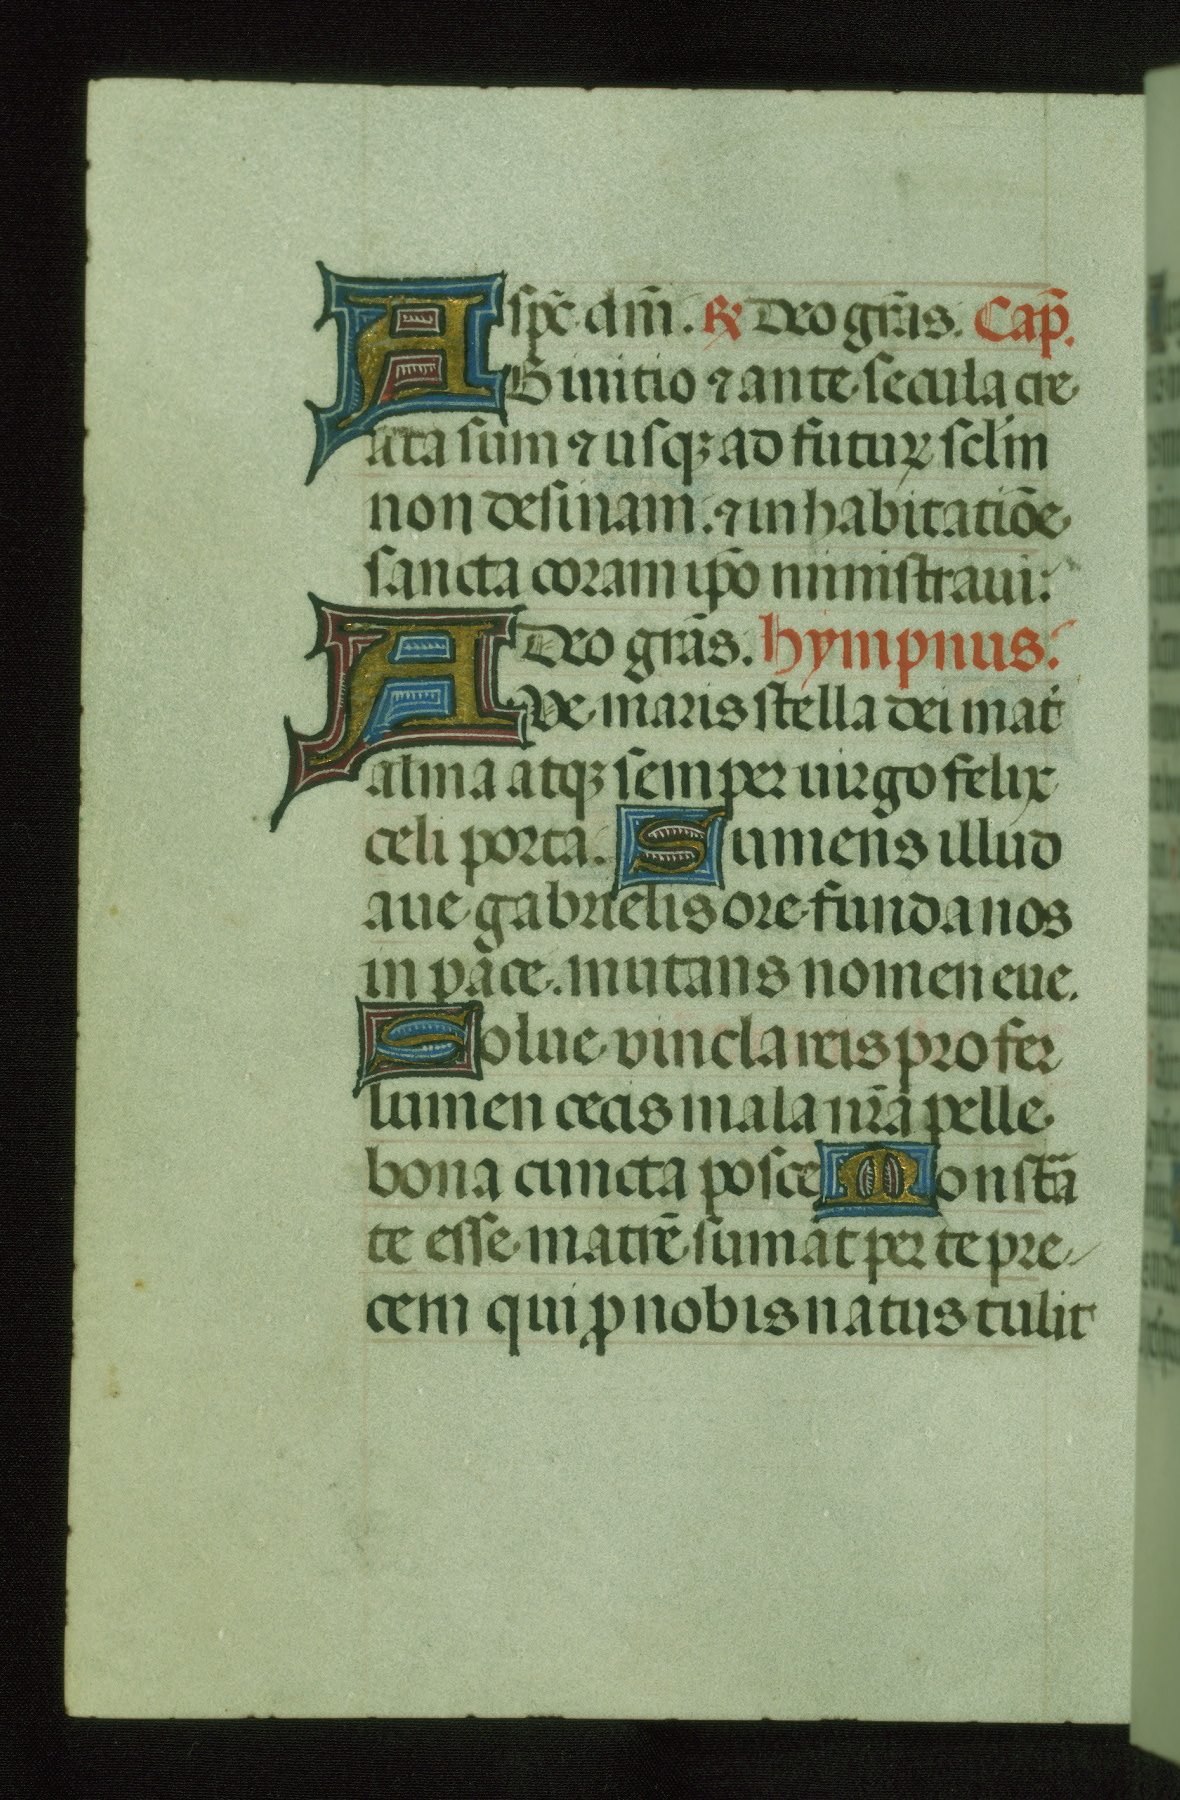 spc̄ dm̄. ℟ Deo gr̄as. Cap̄.
AB initio ⁊ ante secula cre
ata sum ⁊ usqꝫ ad futuꝝ sclm̄
non desinam. ⁊ in habitatiōe
sancta coram ip̄o ministraui.
Deo gr̄as. hympnus.
AVe maris stella dei mat̄
alma atqꝫ semper uirgo felix
celi porta. Sumens illud
aue gabrielis ore funda nos
in pace. mutans nomen eue.
Solue vincla reis profer
lumen cecis mala nr̄a pelle
bona cuncta posce Monstrā
te esse matrē sumat per te pre
cem qui ꝓ nobis natus tulit